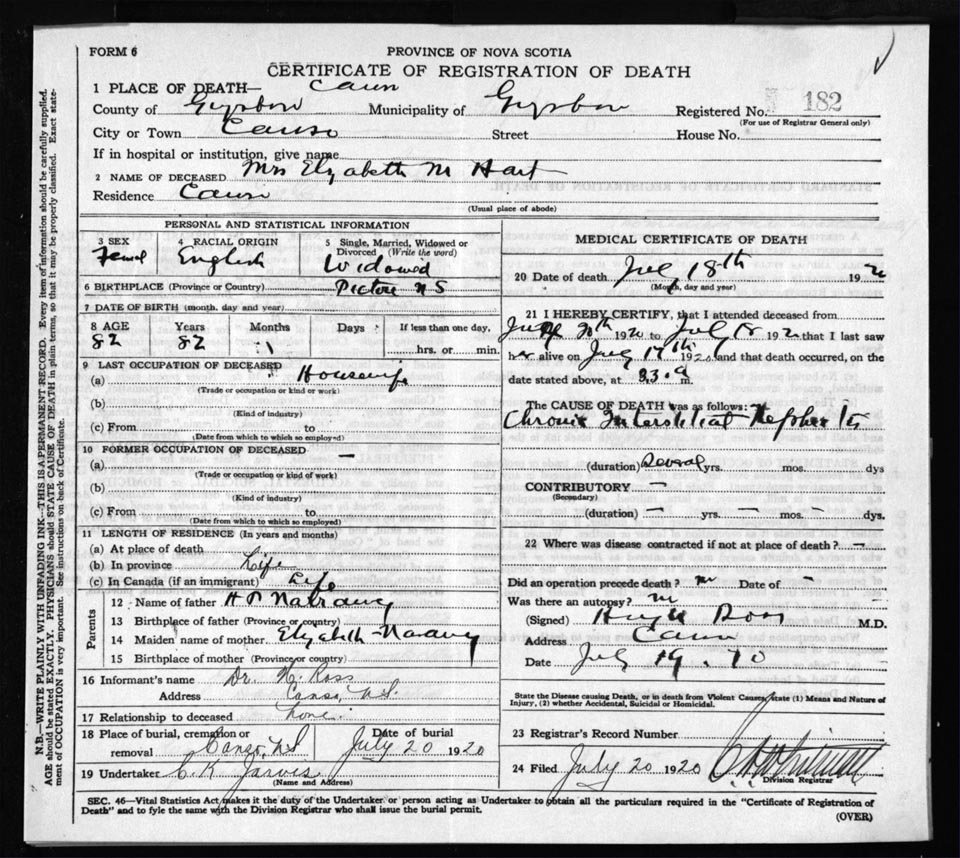 FORM 6
PROVINCE OF NOVA SCOTIA
CERTIFICATE OF REGISTRATION OF DEATH
1 PLACE OF DEATH—
County of Municipality of Registered No. 182
(For use of Registrar General only)
City or Town Canso Street House No.
If in hospital or institution, give name
2 NAME OF DECEASED Mrs Elyzabeth M Hart
Residence Canso
(Usual place of abode)
PERSONAL AND STATISTICAL INFORMATION
3 SEX 4 RACIAL ORIGIN 5 Single, Married, Widowed or Divorced (Write the word)
English Widowed
6 BIRTHPLACE (Province or Country) Pictou N S
7 DATE OF BIRTH (month, day and year)
8 AGE Years Months Days If less than one day,
82 82 hrs. or min.
9 LAST OCCUPATION OF DECEASED Housewife
(a)
(Trade or occupation or kind or work)
(b)
(Kind of industry)
(c) From to
(Date from which to which so employed)
10 FORMER OCCUPATION OF DECEASED —
(a)
(Trade or occupation or kind of work)
(b)
(Kind of industry)
(c) From to
(Date from which to which so employed)
11 LENGTH OF RESIDENCE (In years and months)
(a) At place of death
(b) In province Life
(c) In Canada (if an immigrant) Life
Parents
12 Name of father
13 Birthplace of father (Province or country)
14 Maiden name of mother Elyzabeth
15 Birthplace of mother (Province or country)
16 Informant's name Dr. H. Ross
Address Canso, N.S.
17 Relationship to deceased None.
18 Place of burial, cremation or removal Canso, N.S Date of burial July 20 1920
19 Undertaker C. K. Jarvis
(Name and Address)
MEDICAL CERTIFICATE OF DEATH
20 Date of death July 18th 192
(Month, day and year)
21 I HEREBY CERTIFY, that I attended deceased from
1920 to July 18 192 that I last saw
her alive on July 17th 1920 and that death occurred, on the
date stated above, at m.
The CAUSE OF DEATH was as follows:
Chronic Interstitial Nephritis
(duration) Several yrs. mos. dys
CONTRIBUTORY —
(Secondary)
(duration) — yrs. — mos. — dys.
22 Where was disease contracted if not at place of death? —
Did an operation precede death? no Date of —
Was there an autopsy? no
(Signed) Hugh Ross M.D.
Address
Date July 19. 20
State the Disease causing Death, or in death from Violent Causes state (1) Means and Nature of
Injury, (2) whether Accidental, Suicidal or Homicidal.
23 Registrar's Record Number
24 Filed July 20 1920
Division Registrar
SEC. 46—Vital Statistics Act makes it the duty of the Undertaker or person acting as Undertaker to obtain all the particulars required in the "Certificate of Registration of
Death" and to fyle the same with the Division Registrar who shall issue the burial permit.
(OVER)
N.B.—WRITE PLAINLY WITH UNFADING INK—THIS IS A PERMANENT RECORD. Every item of information should be carefully supplied.
AGE should be stated EXACTLY. PHYSICIANS should STATE CAUSE OF DEATH in plain terms, so that it may be properly classified. Exact state-
ment of OCCUPATION is very important. See instructions on back of Certificate.